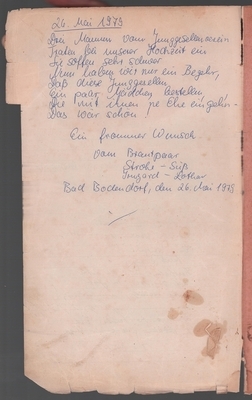 26. Mai 1979
Die Mannen vom Junggesellenverein
traten bei unserer Hochzeit ein
Sie soffen sehr schwer
Nun haben wir nur ein Begehr,
daß diese Junggesellen
Ein paar Mädchen bestellen
Die mit ihnen 'ne Ehe eingehn-
Das wär schön!
Ein frommer Wunsch
vom Brautpaar
Strohe - Süß
Irmgard - Lothar
Bad Bodendorf, den 26. Mai 1979